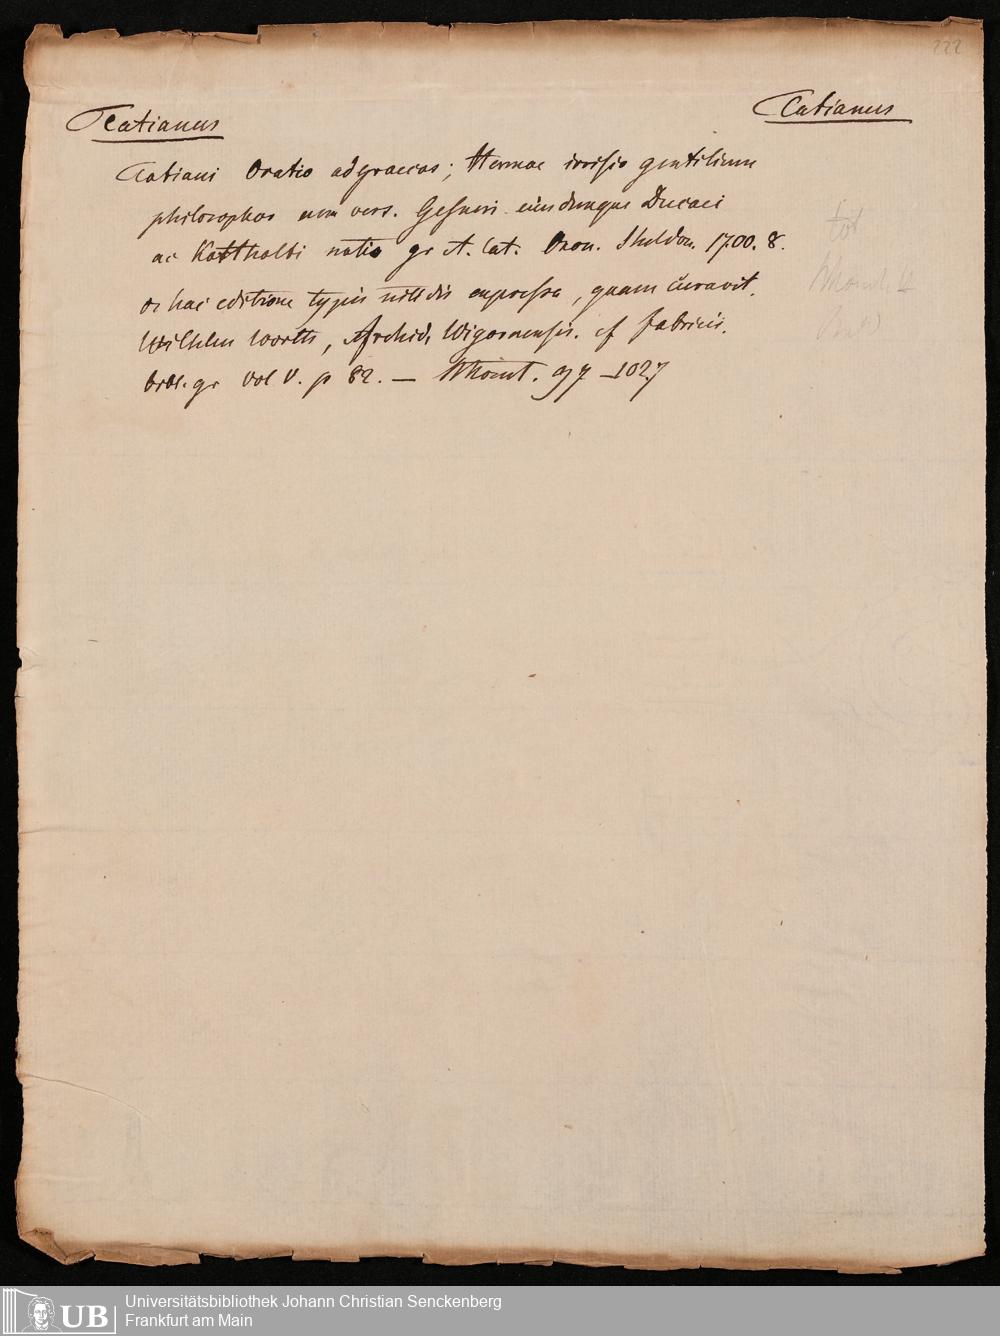 222
Tatianus
Tatianus
Tatiani Oratio ad graecos; Hermae irrisio gentilium
philosophor cum vers. Gesneri eiusdemque Ducaei
ac Kortholti notis gr et. lat. Oxon. Sheldon. 1700. 8.
hac editione typis nitidis expressa, quam curavit
Wilhelm Worth, Archid. Wigornensis. cf fabricii
bibl. gr vol V. p 82. — 97 — 1027
tot
Universitätsbibliothek Johann Christian Senckenberg
Frankfurt am Main
UB